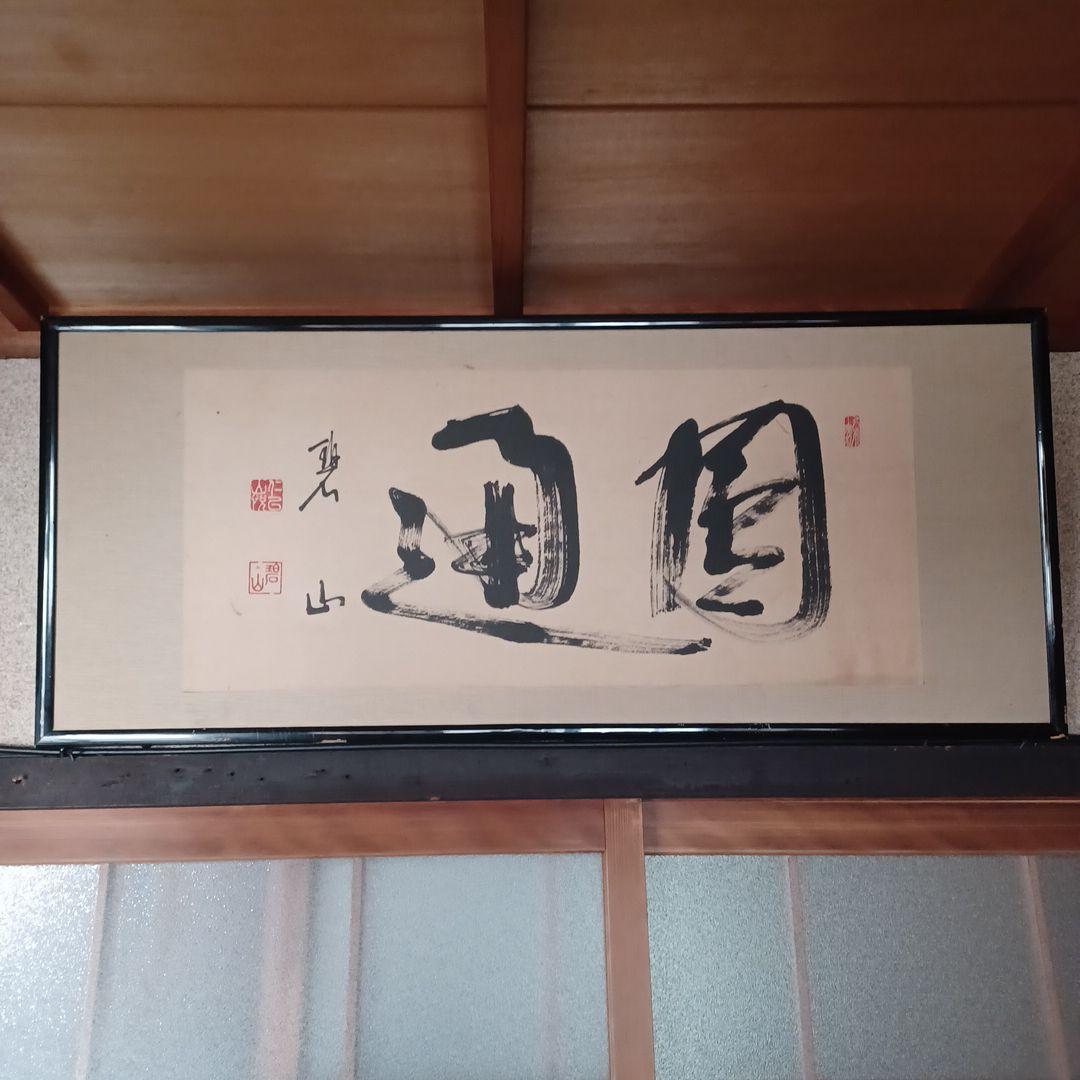 圓通
碧山
碧山